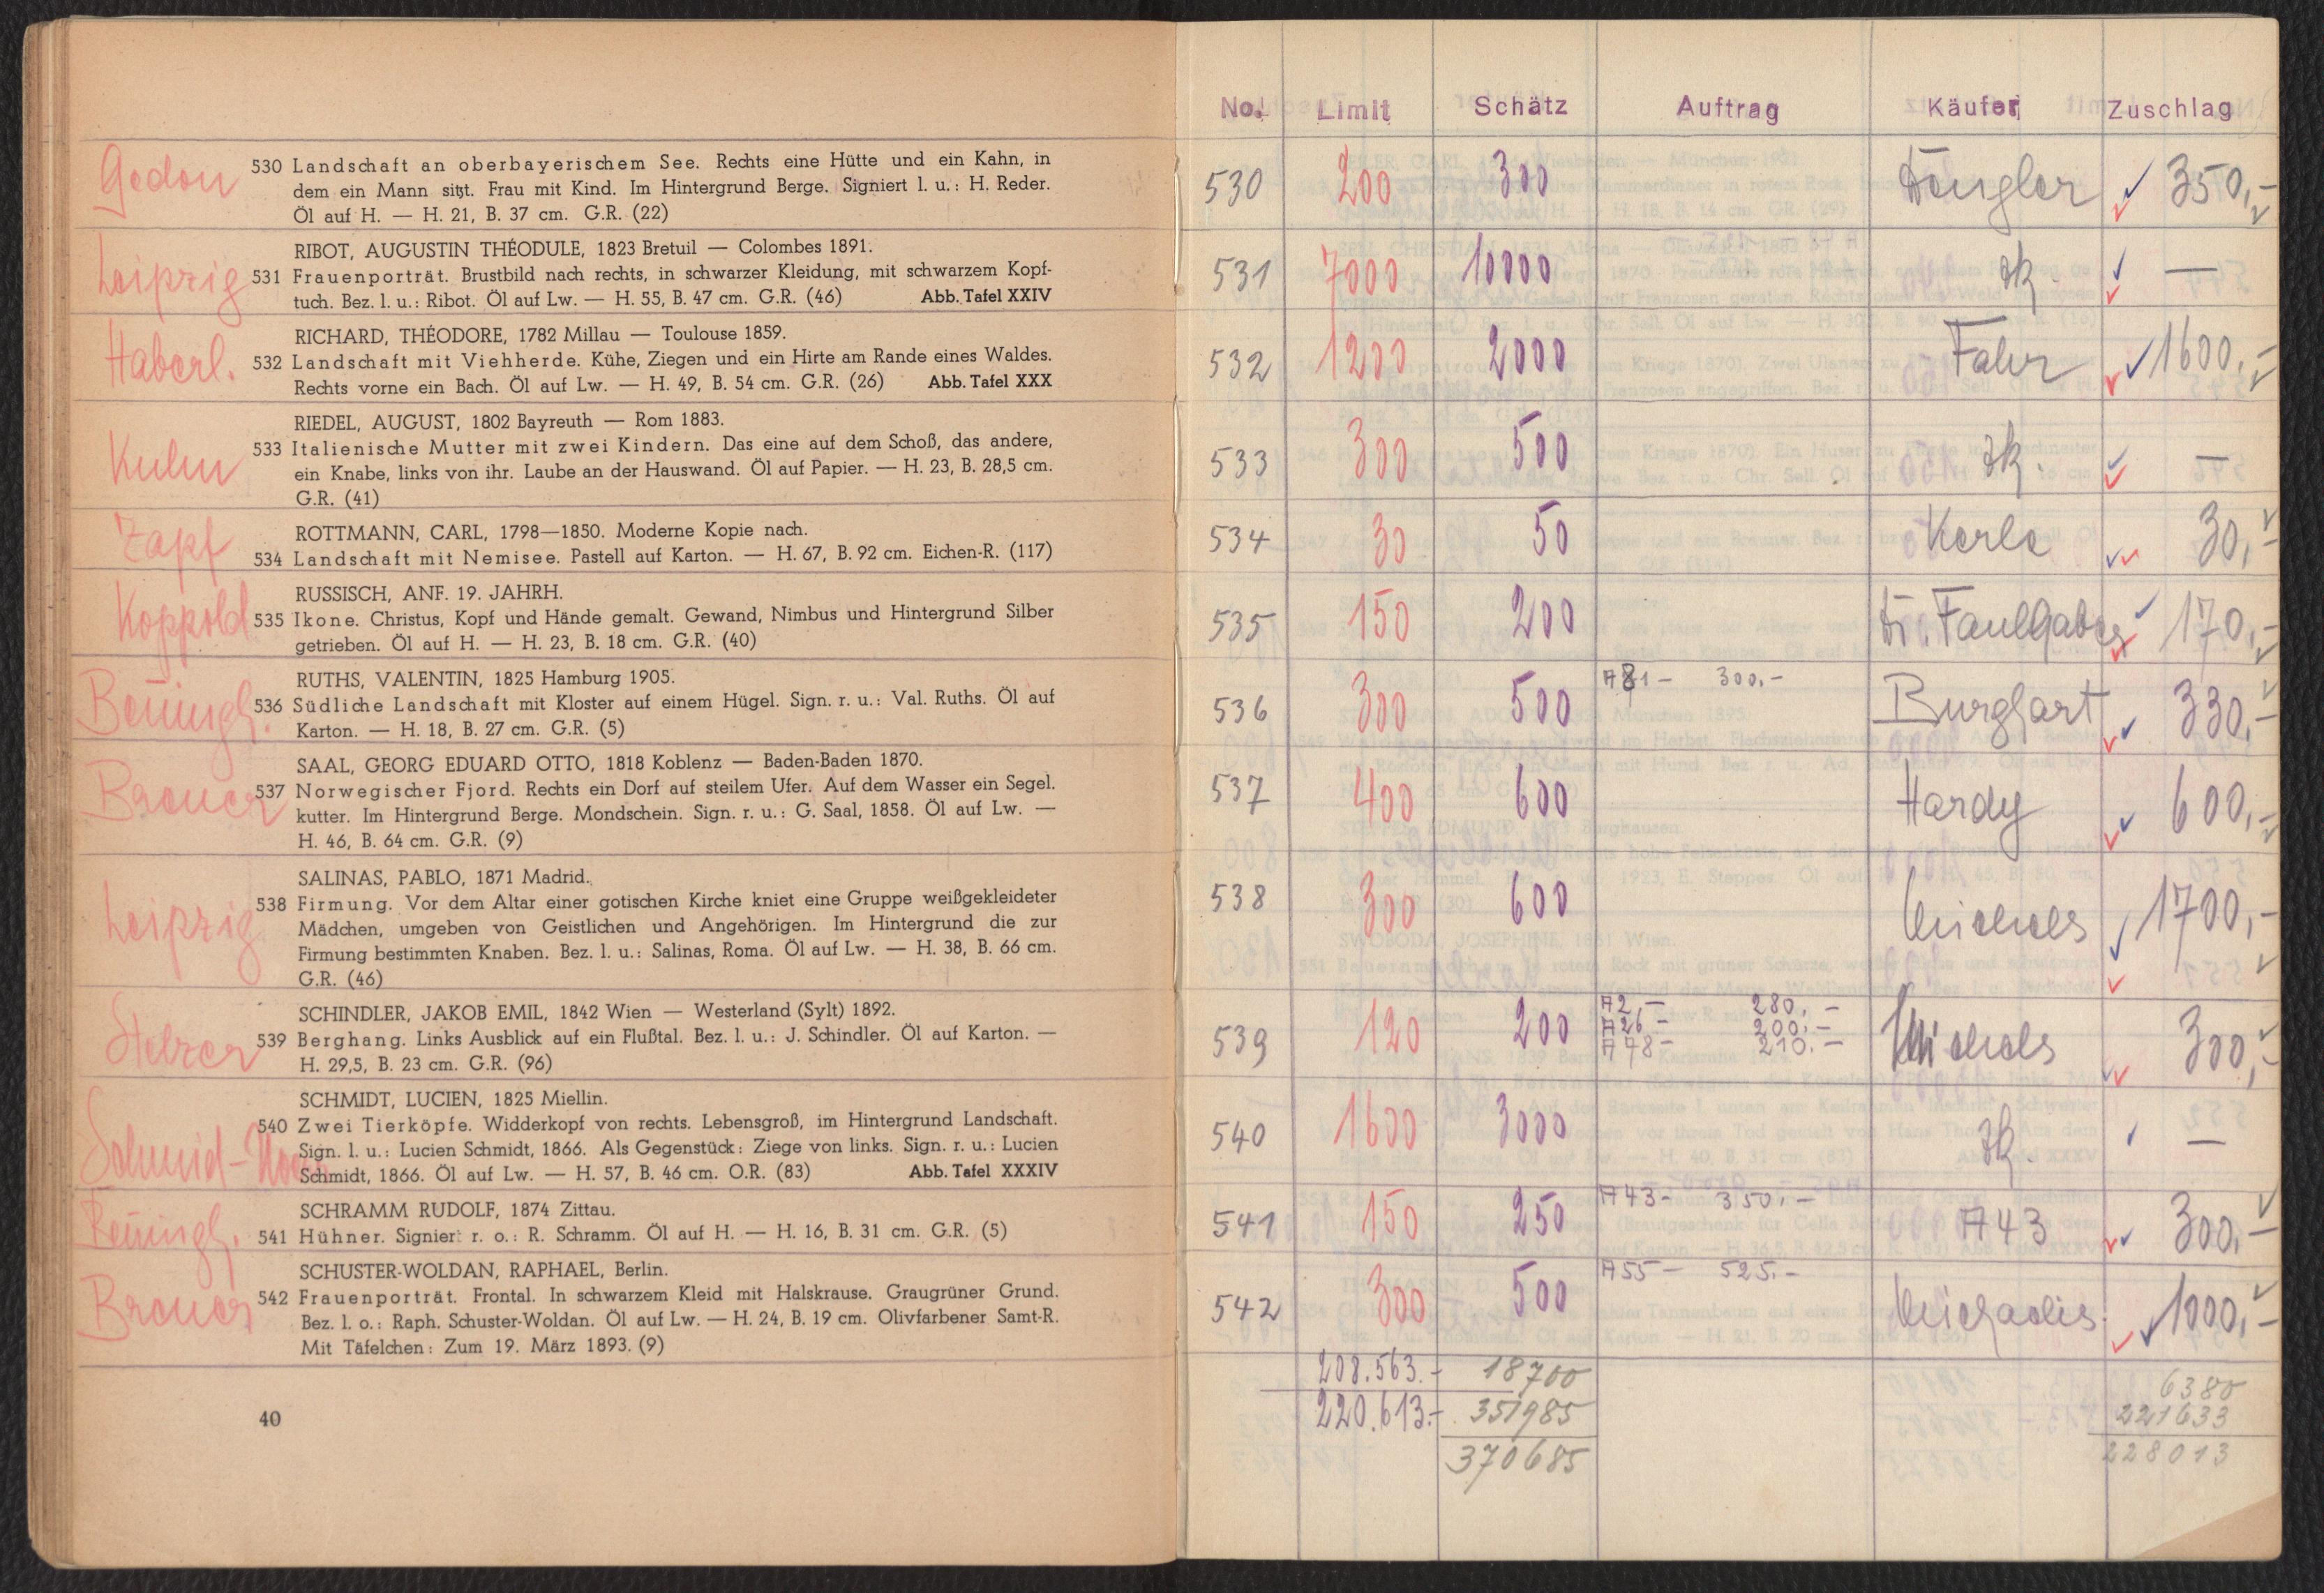 Gedon
530 Landschaft an oberbayerischem See. Rechts eine Hütte und ein Kahn, in
dem ein Mann sitzt. Frau mit Kind. Im Hintergrund Berge. Signiert l. u.: H. Reder.
Öl auf H. — H. 21, B. 37 cm. G.R. (22)
RIBOT, AUGUSTIN THÉODULE, 1823 Bretuil — Colombes 1891.
Leipzig
531 Frauenporträt. Brustbild nach rechts, in schwarzer Kleidung, mit schwarzem Kopf-
tuch. Bez. l. u.: Ribot. Öl auf Lw. — H. 55, B. 47 cm. G.R. (46) Abb. Tafel XXIV
RICHARD, THÉODORE, 1782 Millau — Toulouse 1859.
Haberl.
532 Landschaft mit Viehherde. Kühe, Ziegen und ein Hirte am Rande eines Waldes.
Rechts vorne ein Bach. Öl auf Lw. — H. 49, B. 54 cm. G.R. (26) Abb. Tafel XXX
RIEDEL, AUGUST, 1802 Bayreuth — Rom 1883.
Kuhn
533 Italienische Mutter mit zwei Kindern. Das eine auf dem Schoß, das andere,
ein Knabe, links von ihr. Laube an der Hauswand. Öl auf Papier. — H. 23, B. 28,5 cm.
G.R. (41)
Zapf
ROTTMANN, CARL, 1798—1850. Moderne Kopie nach.
534 Landschaft mit Nemisee. Pastell auf Karton. — H. 67, B. 92 cm. Eichen-R. (117)
RUSSISCH, ANF. 19. JAHRH.
Koppold
535 Ikone. Christus, Kopf und Hände gemalt. Gewand, Nimbus und Hintergrund Silber
getrieben. Öl auf H. — H. 23, B. 18 cm. G.R. (40)
RUTHS, VALENTIN, 1825 Hamburg 1905.
536 Südliche Landschaft mit Kloster auf einem Hügel. Sign. r. u.: Val. Ruths. Öl auf
Karton. — H. 18, B. 27 cm. G.R. (5)
SAAL, GEORG EDUARD OTTO, 1818 Koblenz — Baden-Baden 1870.
537 Norwegischer Fjord. Rechts ein Dorf auf steilem Ufer. Auf dem Wasser ein Segel.
kutter. Im Hintergrund Berge. Mondschein. Sign. r. u.: G. Saal, 1858. Öl auf Lw. —
H. 46, B. 64 cm. G.R. (9)
SALINAS, PABLO, 1871 Madrid.
Leipzig
538 Firmung. Vor dem Altar einer gotischen Kirche kniet eine Gruppe weißgekleideter
Mädchen, umgeben von Geistlichen und Angehörigen. Im Hintergrund die zur
Firmung bestimmten Knaben. Bez. l. u.: Salinas, Roma. Öl auf Lw. — H. 38, B. 66 cm.
G.R. (46)
SCHINDLER, JAKOB EMIL, 1842 Wien — Westerland (Sylt) 1892.
Stelzer
539 Berghang. Links Ausblick auf ein Flußtal. Bez. l. u.: J. Schindler. Öl auf Karton. —
H. 29,5, B. 23 cm. G.R. (96)
SCHMIDT, LUCIEN, 1825 Miellin.
540 Zwei Tierköpfe. Widderkopf von rechts. Lebensgroß, im Hintergrund Landschaft.
Sign. l. u.: Lucien Schmidt, 1866. Als Gegenstück: Ziege von links. Sign. r. u.: Lucien
Schmidt, 1866. Öl auf Lw. — H. 57, B. 46 cm. O.R. (83) Abb. Tafel XXXIV
SCHRAMM RUDOLF, 1874 Zittau.
541 Hühner. Signiert r. o.: R. Schramm. Öl auf H. — H. 16, B. 31 cm. G.R. (5)
SCHUSTER-WOLDAN, RAPHAEL, Berlin.
542 Frauenporträt. Frontal. In schwarzem Kleid mit Halskrause. Graugrüner Grund.
Bez. l. o.: Raph. Schuster-Woldan. Öl auf Lw. — H. 24, B. 19 cm. Olivfarbener Samt-R.
Mit Täfelchen: Zum 19. März 1893. (9)
40
No. Limit Schätz Auftrag Käufer Zuschlag
530 200 300 350,-
531 7000 10000 zk. —
532 1200 2000 Fahr 1600,-
533 300 500 zk. —
534 30 50 Kerle 30,-
535 150 200 Dr. Faulhaber 170,-
536 300 500 A81- 300.- Burghart 330,-
537 400 600 Hardy 600,-
538 300 600 1700,-
539 120 200 A2,- 280,- 300,-
A26- 200.-
A78- 210.-
540 1600 3000 zk. —
541 150 250 A43- 350,- A43 300,-
542 300 500 A55- 525.- Michaelis 1000,-
208.563.- 18700 6380
220.613.- 351985 221633
370685 228013